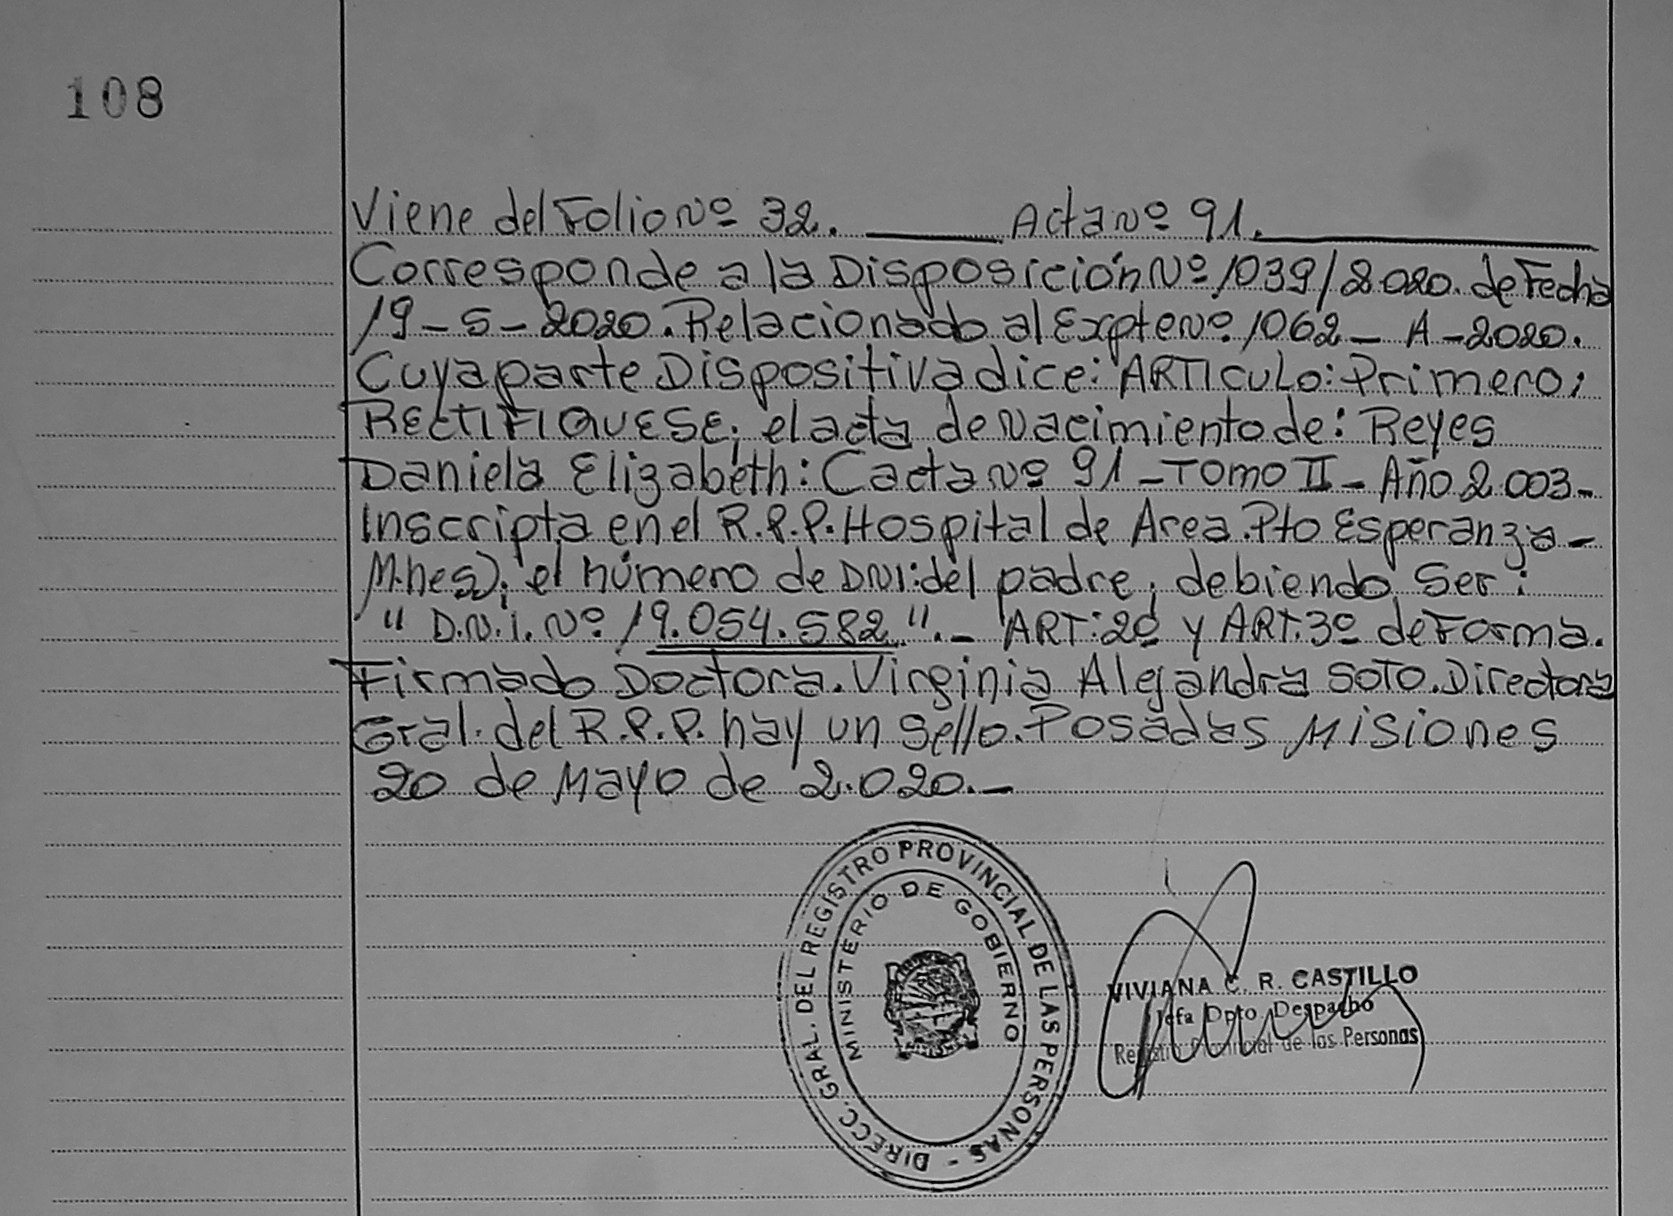 108
Viene del Folio Nº 32. Acta Nº 91.
Corresponde a la Disposición Nº 1039/2020. de Fecha
19-5-2020. Relacionado al Expte Nº 1062-A-2020.
Cuya parte Dispositiva dice: ARTICULO: Primero;
RECTIFIQUESE; el acta de Nacimiento de: Reyes
Daniela Elizabeth: (acta Nº 91-TOMO II-Año 2.003-
Inscripta en el R.P.P. Hospital de Area. Pto Esperanza-
M.nes); el número de DNI: del padre; debiendo ser:
" D.N.i. Nº 19.054.582 ".- ART: 2º y ART. 3º de Forma.
Firmado Doctora. Virginia Alejandra SOTO. Directora
Gral. del R.P.P. hay un Sello. Posadas Misiones
20 de Mayo de 2.020.-
DIRECC. GRAL. DEL REGISTRO PROVINCIAL DE LAS PERSONAS -
MINISTERIO DE GOBIERNO
VIVIANA C. R. CASTILLO
Jefa Dpto. Despacho
Registro Provincial de las Personas